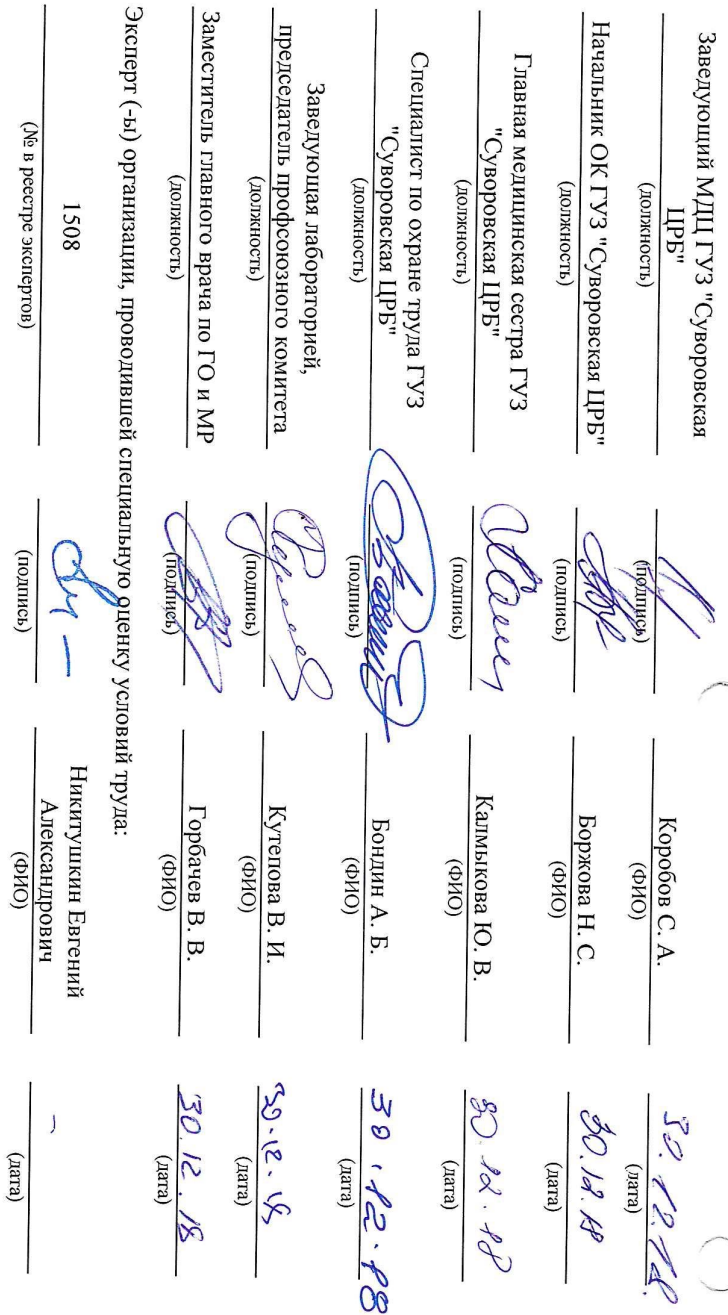 Заведующий МДЦ ГУЗ "Суворовская
ЦРБ" Коробов С. А. 30.12.18.
(должность) (подпись) (ФИО) (дата)
Начальник ОК ГУЗ "Суворовская ЦРБ" Боржова Н. С. 30.12.18
(должность) (подпись) (ФИО) (дата)
Главная медицинская сестра ГУЗ
"Суворовская ЦРБ" Калмыкова Ю. В. 30.12.18
(должность) (подпись) (ФИО) (дата)
Специалист по охране труда ГУЗ
"Суворовская ЦРБ" Бондин А. Б. 30.12.18
(должность) (подпись) (ФИО) (дата)
Заведующая лабораторией,
председатель профсоюзного комитета Кутепова В. И. 30.12.18
(должность) (подпись) (ФИО) (дата)
Заместитель главного врача по ГО и МР Горбачев В. В. 30.12.18
(должность) (подпись) (ФИО) (дата)
Эксперт (-ы) организации, проводившей специальную оценку условий труда:
1508 Никитушкин Евгений
Александрович
(№ в реестре экспертов) (подпись) (ФИО) (дата)